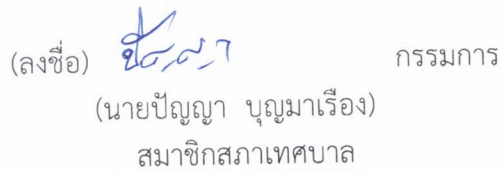 (ลงชื่อ) ปัญญา กรรมการ
(นายปัญญา บุญมาเรือง)
สมาชิกสภาเทศบาล